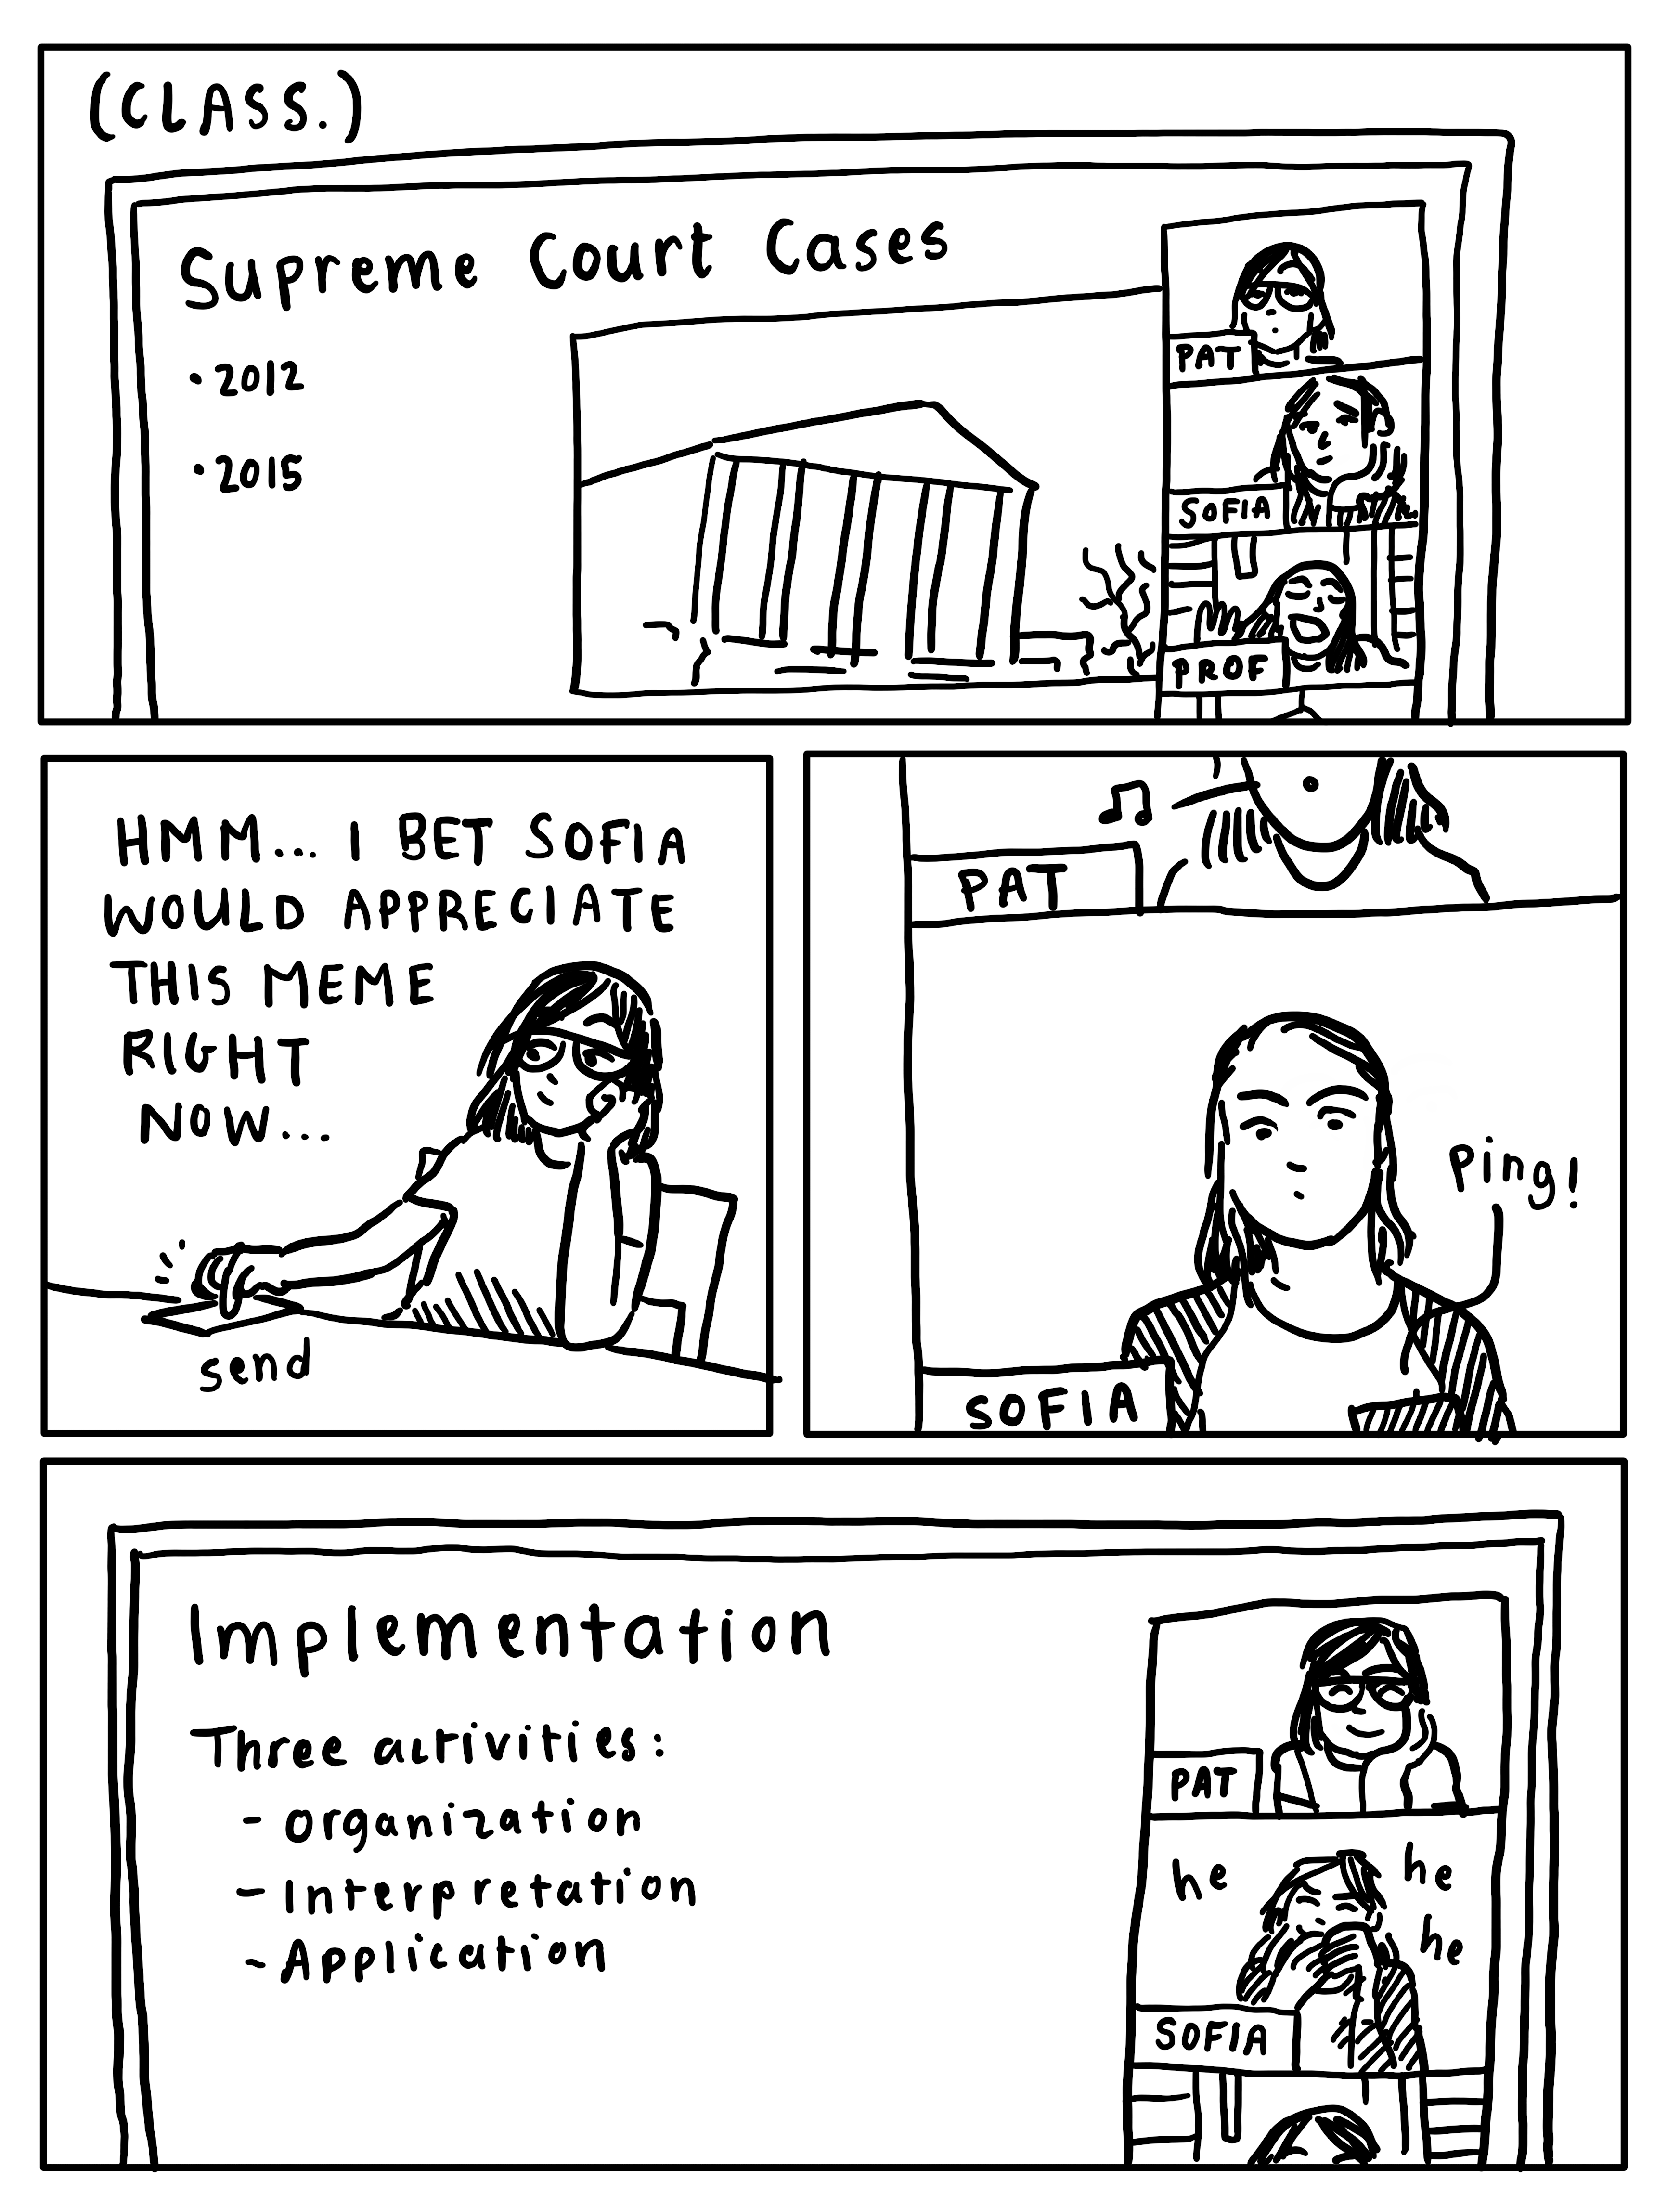 (CLASS.)
Supreme Court Cases
• 2012
• 2015
PAT
SOFIA
PROF
HMM... I BET SOFIA
WOULD APPRECIATE
THIS MEME
RIGHT
NOW...
send
PAT
Ping!
SOFIA
Implementation
Three activities:
- Organization
- Interpretation
- Application
PAT
he
he
he
SOFIA